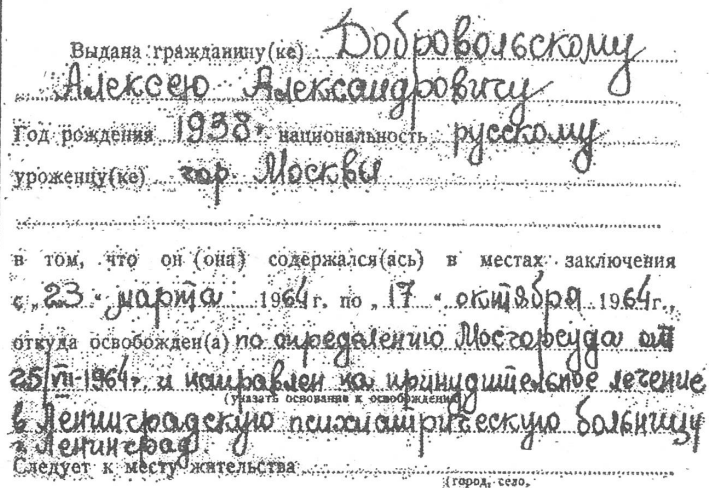 Выдана гражданину(ке) Добровольскому
Алексею Александровичу
Год рождения 1938г. национальность русскому
уроженцу(ке) гор. Москвы
в том, что он (она) содержался(ась) в местах заключения
с „23“ марта 1964г. по „17“ октября 1964г.,
откуда освобожден(а) по определению Мосгорсуда от
25/VII-1964г. и направлен на принудительное лечение
(указать основания к освобождению)
в Ленинградскую психиатрическую больницу
г. Ленинград.
Следует к месту жительства
(город, село,